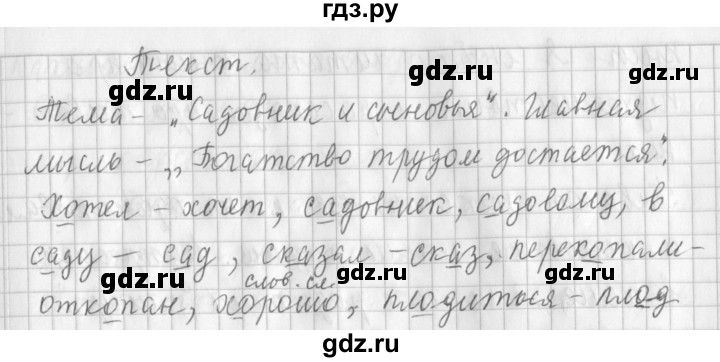 гдз.ру
Текст.
Тема - „Садовник и сыновья“. Главная
мысль - „Богатство трудом достается“.
Хотел - хочет, садовник, садовому, в
саду - сад, сказал - сказ, перекопали-
слов. сл.
откопан, хорошо, плодиться - плод
gdz.ru
gdz.ru
gdz.ru
gdz.ru
gdz.ru
gdz.ru
gdz.ru
gdz.ru
gdz.ru
gdz.ru